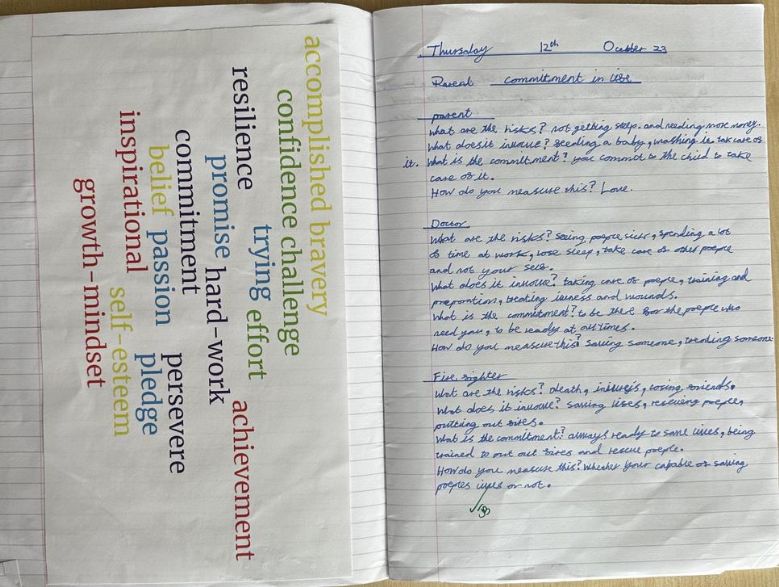 accomplished bravery
confidence challenge
resilience trying effort
promise hard-work achievement
commitment persevere
belief passion pledge
inspirational self-esteem
growth-mindset
Thursday 12th October 23
Reveal commitment in life
parent
What are the risks? not getting sleep. and needing more money.
What does it invoue? feeding a baby, washing it take care of
it. What is the commitment? you commit to the child to take
care of it.
How do you measure this? Love.
Doctor
What are the risks? Seing people sick, spending a lot
of time at work, lose sleep, take care of other people
and not your self.
What does it invoue? taking care of people, training and
preporation, treating ilness and wounds.
What is the commitment? to be there for the people who
need you, to be ready at all times.
How do you measure this? saving someone, treading someone
Fire fighter
What are the risks? death, losing friends.
What does it invoue? saving lives, rescuing people,
putting out fires.
What is the commitment? always ready to save lives, being
trained to put out fires and rescue people.
How do you measure this? Whether your capable of saving
peoples lives or not.